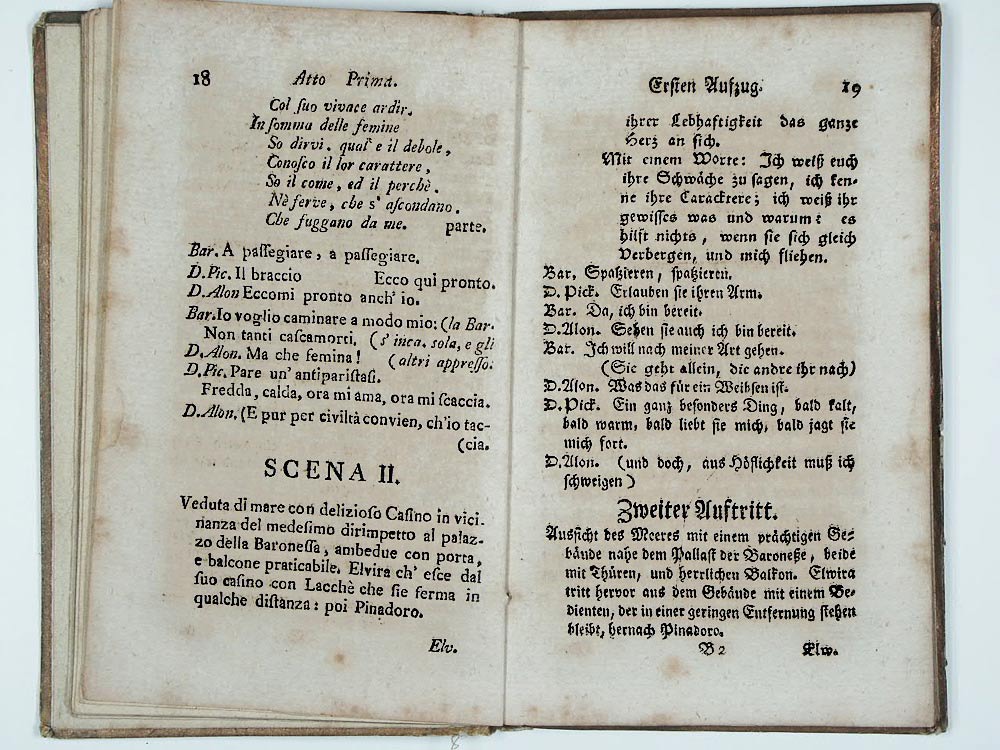 18 Atto Prima.
Col ſuo vivace ardir.
In ſomma delle femine
So dirvi. qual' e il debole,
Conoſco il lor carattere,
So il come, ed il perchè.
Nè ſerve, che s' aſcondano.
Che fuggano da me. parte.
Bar. A paſſegiare, a paſſegiare.
D. Pic. Il braccio Ecco qui pronto.
D. Alon Eccomi pronto anch' io.
Bar. Io voglio caminare a modo mio: (la Bar.
Non tanti caſcamorti. (s' inca. ſola, e gli
D. Alon. Ma che femina! (altri appreſſo.
D. Pic. Pare un' antipariſtaſi.
Fredda, calda, ora mi ama, ora mi ſcaccia.
D. Alon. (E pur per civiltà convien, ch'io tac-
(cia.
SCENA II.
Veduta di mare con delizioſo Caſino in vici-
nanza del medeſimo dirimpetto al palaz-
zo della Baroneſſa, ambedue con porta,
e balcone praticabile. Elvira ch' eſce dal
ſuo caſino con Lacchè che ſie ferma in
qualche diſtanza: poi Pinadoro.
Elv.
Erſten Aufzug. 19
ihrer Lebhaftigkeit das ganze
Herz an ſich.
Mit einem Worte: Ich weiß euch
ihre Schwäche zu ſagen, ich ken-
ne ihre Caracktere; ich weiß ihr
gewiſſes was und warum: es
hilft nichts, wenn ſie ſich gleich
Verbergen, und mich fliehen.
Bar. Spatzieren, ſpatzieren.
D. Pick. Erlauben ſie ihren Arm.
Bar. Da, ich bin bereit.
D. Alon. Sehen ſie auch ich bin bereit.
Bar. Ich will nach meiner Art gehen.
(Sie geht allein, die andre ihr nach)
D. Alon. Was das für ein Weibſen iſt.
D. Pick. Ein ganz beſonders Ding, bald kalt,
bald warm, bald liebt ſie mich, bald jagt ſie
mich fort.
D. Alon. (und doch, aus Höflichkeit muß ich
ſchweigen)
Zweiter Auftritt.
Ausſicht des Meeres mit einem prächtigen Ge-
bäude nahe dem Pallaſt der Baroneße, beide
mit Thüren, und herrlichen Balkon. Elwira
tritt hervor aus dem Gebäude mit einem Be-
dienten, der in einer geringen Entfernung ſtehen
bleibt, hernach Pinadoro.
B 2 Elw.